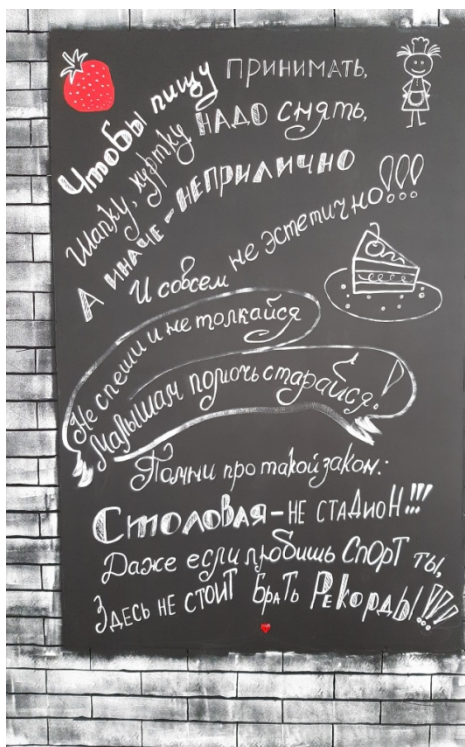 Чтобы пищу принимать,
Шапку, куртку надо снять,
А иначе - неприлично
И совсем не эстетично!!!
Не спеши и не толкайся
Малышам помочь старайся!
Помни про такой закон:
Столовая - не стадион!!!
Даже если любишь спорт ты,
Здесь не стоит брать рекорды!!!